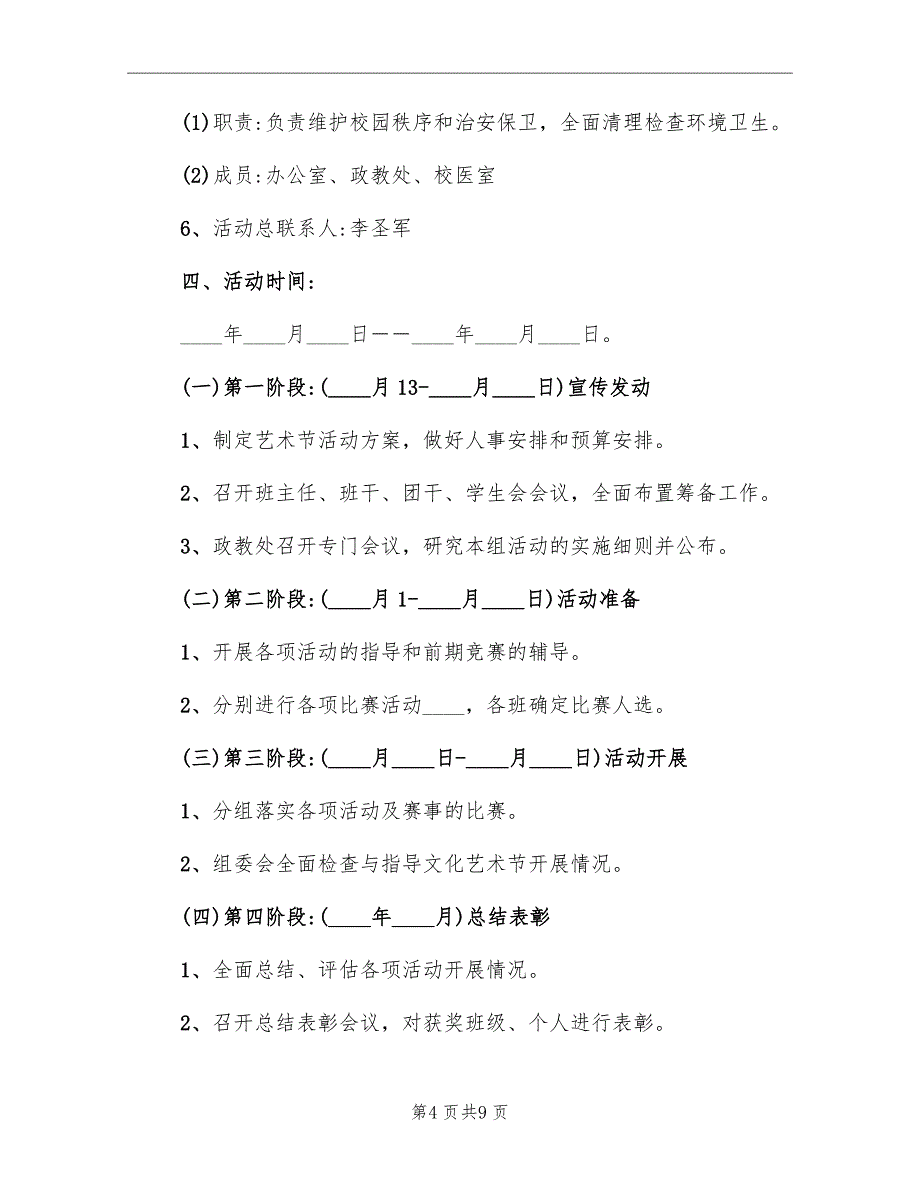 (1)职责:负责维护校园秩序和治安保卫，全面清理检查环境卫生。
(2)成员:办公室、政教处、校医室
6、活动总联系人:李圣军
四、活动时间:
____年____月____日――____年____月____日。
(一)第一阶段:(____月13-____月____日)宣传发动
1、制定艺术节活动方案，做好人事安排和预算安排。
2、召开班主任、班干、团干、学生会会议，全面布置筹备工作。
3、政教处召开专门会议，研究本组活动的实施细则并公布。
(二)第二阶段:(____月1-____月____日)活动准备
1、开展各项活动的指导和前期竞赛的辅导。
2、分别进行各项比赛活动____，各班确定比赛人选。
(三)第三阶段:(____月____日-____月____日)活动开展
1、分组落实各项活动及赛事的比赛。
2、组委会全面检查与指导文化艺术节开展情况。
(四)第四阶段:(____年____月)总结表彰
1、全面总结、评估各项活动开展情况。
2、召开总结表彰会议，对获奖班级、个人进行表彰。
第4 页共9 页